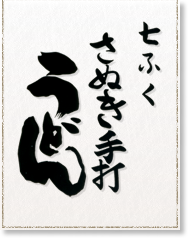 七ふく
さぬき手打
うどん